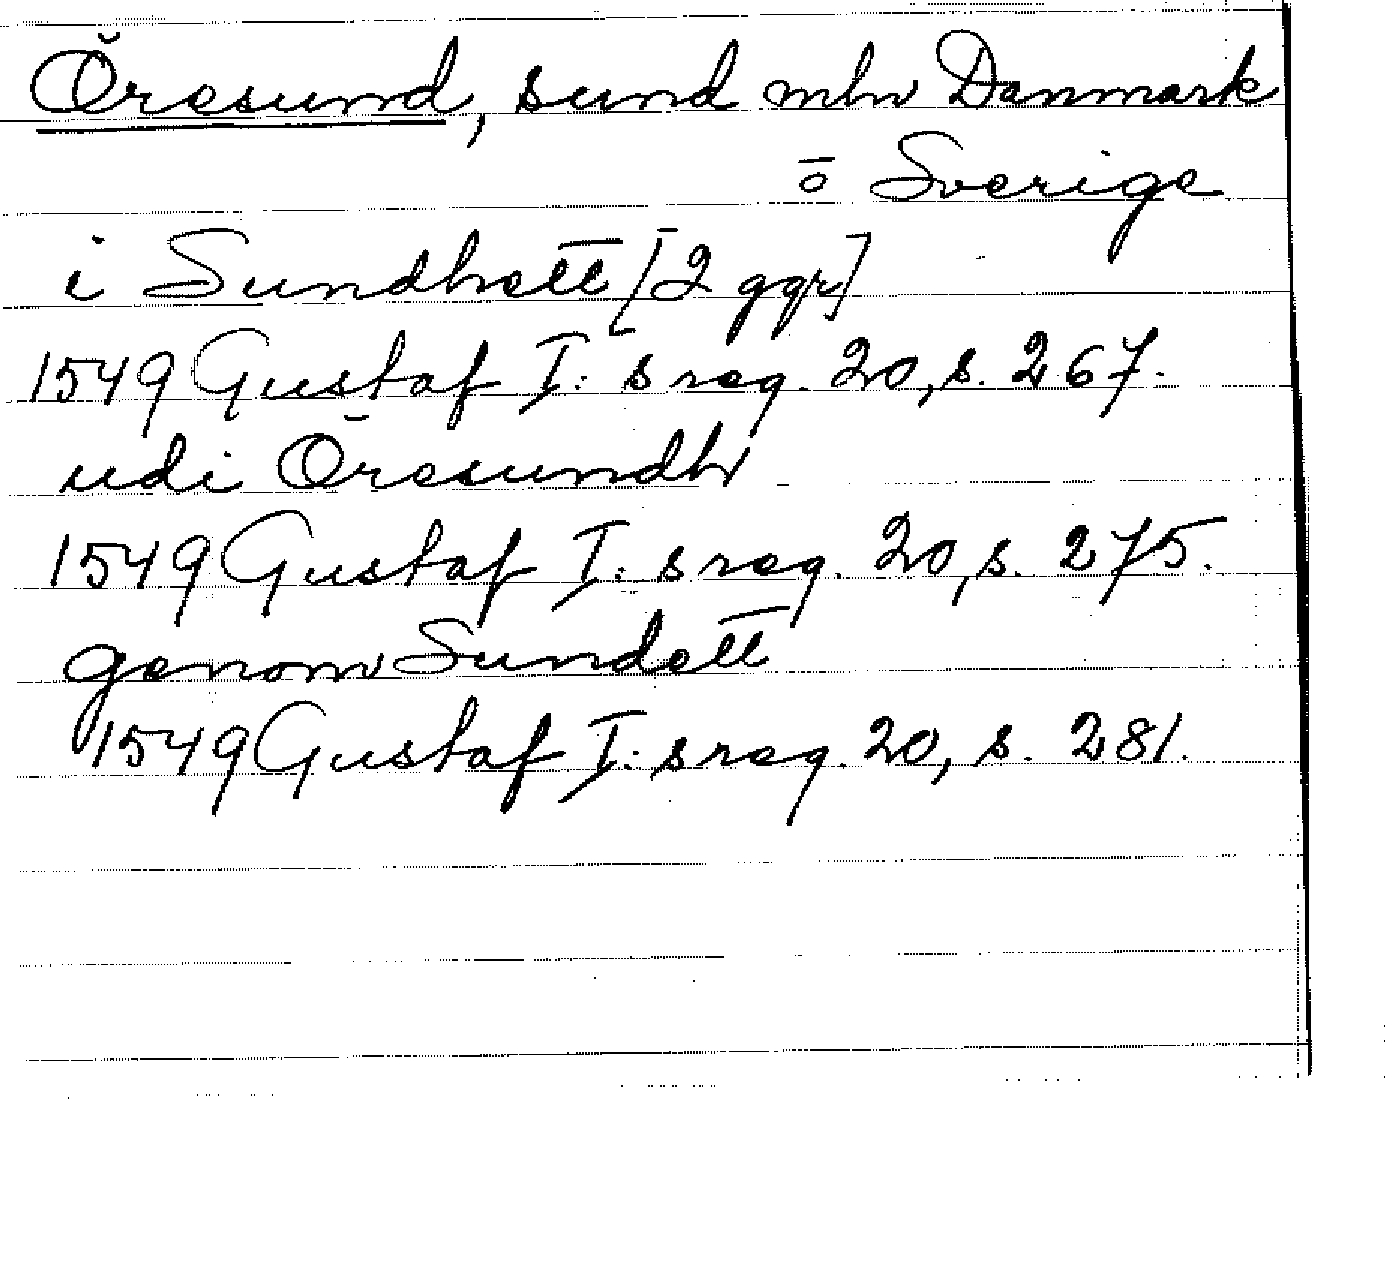 Öresund, sund mln Danmark
o Sverige
i Sundhett [2 ggr]
1549 Gustaf I: s reg. 20, s. 267.
udi Öresundh
1549 Gustaf I: s reg. 20, s. 275.
genom Sundett
1549 Gustaf I: s reg. 20, s. 281.